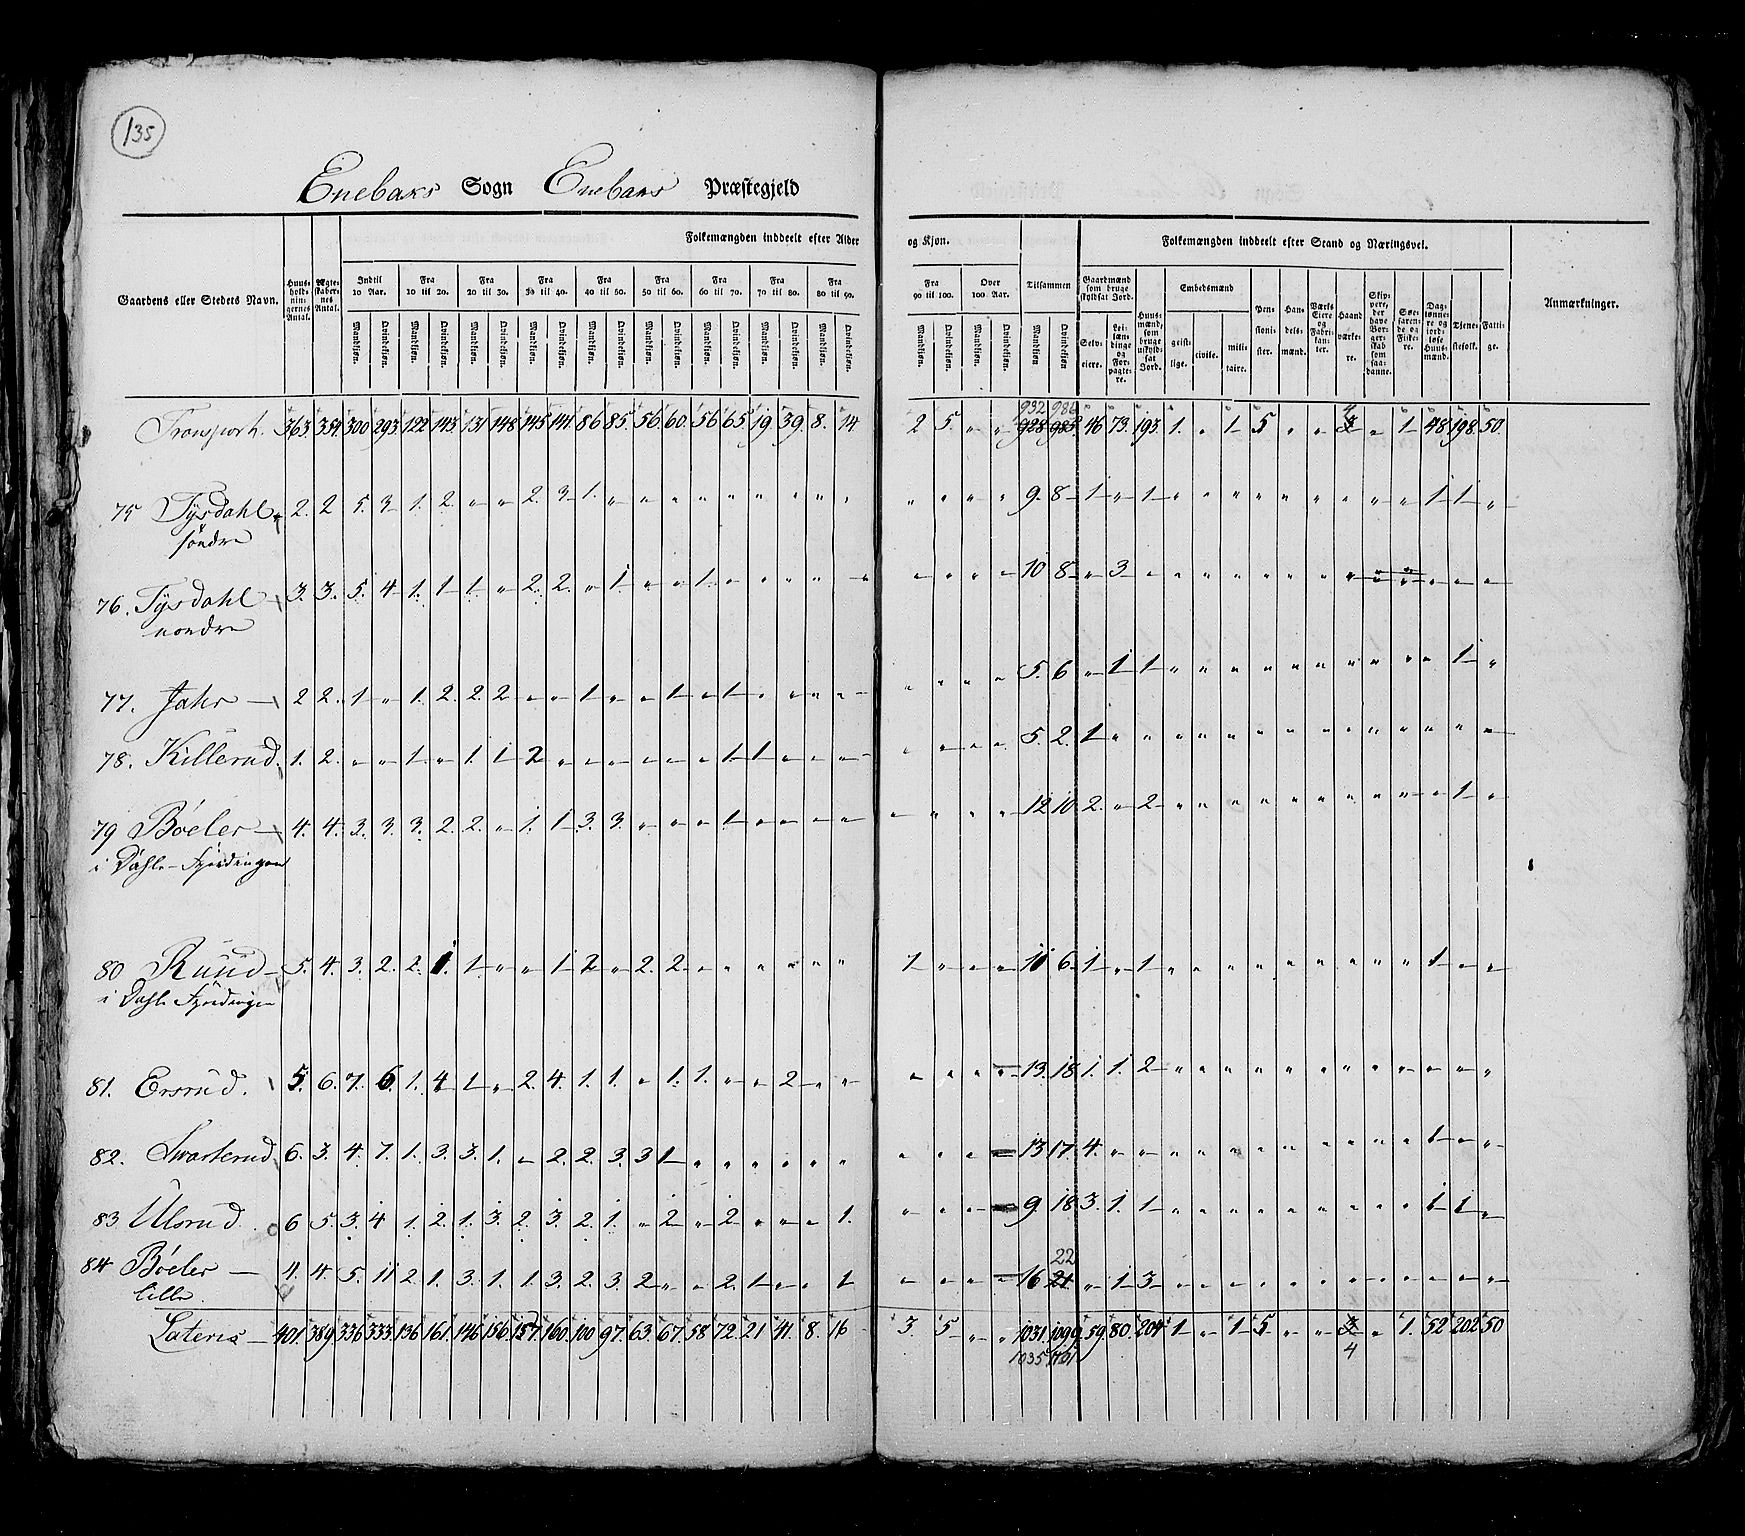 135
Enebaks Sogn Enebaks Præstegjeld
Folkemængden inddeelt efter Alder og Kjøn. Folkemængden inddeelt efter Stand og Næringsvei.
Gaardens eller Stedets Navn. Huusholdningernes Antal. Ægteskabernes Antal. Indtil 10 Aar. Fra 10 til 20. Fra 20 til 30. Fra 30 til 40. Fra 40 til 50. Fra 50 til 60. Fra 60 til 70. Fra 70 til 80. Fra 80 til 90. Fra 90 til 100. Over 100 Aar. Tilsammen Gaardmænd som bruge skyldsat Jord. Huusmænd, som bruge uskyldsat Jord. Embedsmænd Pensionister. Handelsmænd. Værks Eiere og Fabrikanter. Haandværkere. Skippere, der have Borgerskab som saadanne. Søefarende og Fiskere. Daglønnere og jordløse Huusmænd. Tjenestefolk. Fattige. Anmærkninger.
Mandkjøn. Qvindekjøn. Mandkjøn. Qvindekjøn. Mandkjøn. Qvindekjøn. Mandkjøn. Qvindekjøn. Mandkjøn. Qvindekjøn. Mandkjøn. Qvindekjøn. Mandkjøn. Qvindekjøn. Mandkjøn. Qvindekjøn. Mandkjøn. Qvindekjøn. Mandkjøn. Qvindekjøn. Mandkjøn. Qvindekjøn. Mandkjøn. Qvindekjøn. Selveiere. Leilændinge og Forpagtere. geistlige. civile. militaire.
932 986 4
Transport. 363. 354. 300 293. 122 143. 131 148 145 141. 86 85. 56 60. 56 65. 19 39. 8. 14 2 5. " " 928 985 46 73. 193. 1. " 1 5 " " 3 " 1 48 198. 50.
75 Tysdahl 2. 2 5. 3 1. 2. " " 2. 3 1. " " " " " " " " " " " " " 9 8 1 " 1 " " " " " " " " " 1 1 "
søndre
76. Tysdahl 3. 3. 5. 4 1. 1 1 " 2 2. " 1 " " 1 " " " " " " " " " 10 8 " 3 " " " " " " " " " " " " "
nordre
77. Jahr 2 2. 1 " 1. 2 2. 2 " " 1 " " 1 " 1 " " " " " " " " 5. 6 " 1 1 " " " " " " " " " " 1 "
78. Killerud. 1. 2. " " 1 " 1. 1 2 " " " " " " 1 1 " " " " " " " 5. 2. 1 " " " " " " " " " " " " " "
79 Bøeler 4. 4. 3. 3. 3. 2 2. " 1. 1 3 3. " " " 1 " " " " " " " " 12 10 2. " 2 " " " " " " " " " " 1 "
i Dahle-Fjerdingen
80 Ruud 5. 4. 3. 2. 2. 1. 1. " " 1 2 " 2. 2 " " " " " " 1 " " " 11 6 1 " 1 " " " " " " " " " 1 " "
i Dahle Fjerdingen
81. Ersrud. 5. 6. 7. 6 1. 4 1 " 2. 4. 1. 1. " 1. 1. " " 2 " " " " " " 13. 18 1. 1. 2 " " " " " " " " " " " "
82. Svarterud 6. 3. 4. 7. 1. 3. 3. 1. " 2. 2. 3. 3 1 " " " " " " " " " " 13 17 4. " " " " " " " " " " " 1 " "
83 Ulsrud 6 5. 3. 4 1. 2. 1. 3. 2. 3. 2. 1. " 2 " 2 " " " 1. " " " " 9 18 3. 1. 1 " " " " " " " " " 1 1 "
22
84 Bøeler 4. 4. 5. 11 2 1. 3. 1. 1. 3. 2. 3. 2 " " 2. 1 " " 1 " " " " 16 21 " 1 3 " " " " " " " " " " " "
lille.
Lateris 401. 389. 336 333. 136 161. 146 156. 157 160. 100 97. 63. 67. 58 72. 21 41. 8. 16 3. 5 " " 1031. 1099. 59. 80. 204 1 " 1 5 " " 3 " 1. 52 202 50
1035 1101 4